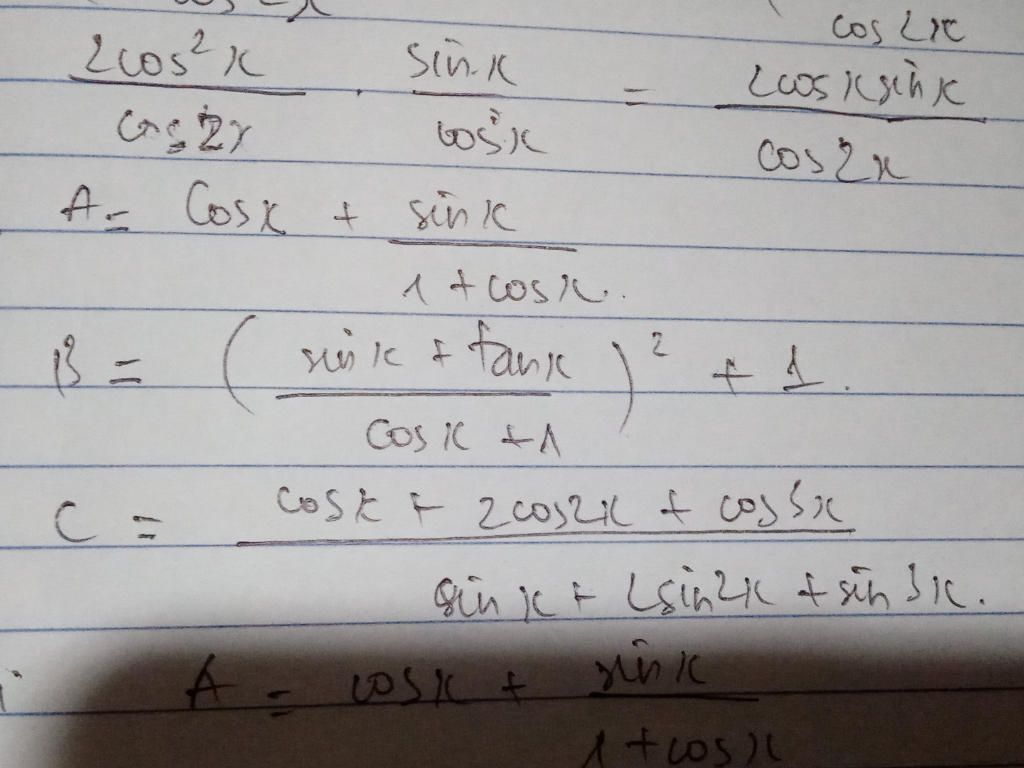 cos 2x
2cos²x / cos2x . sinx / cosx = 2cosxsinx / cos2x
A = Cosx + sinx / 1 + cosx.
B = ( sinx + tanx / cosx + 1 )² + 1.
C = cosx + 2cos2x + cos3x / sinx + 2sin2x + sin3x.
A = cosx + sinx / 1 + cosx